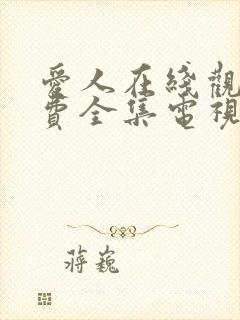 愛人在綫觀
費全集電視
蔣巍